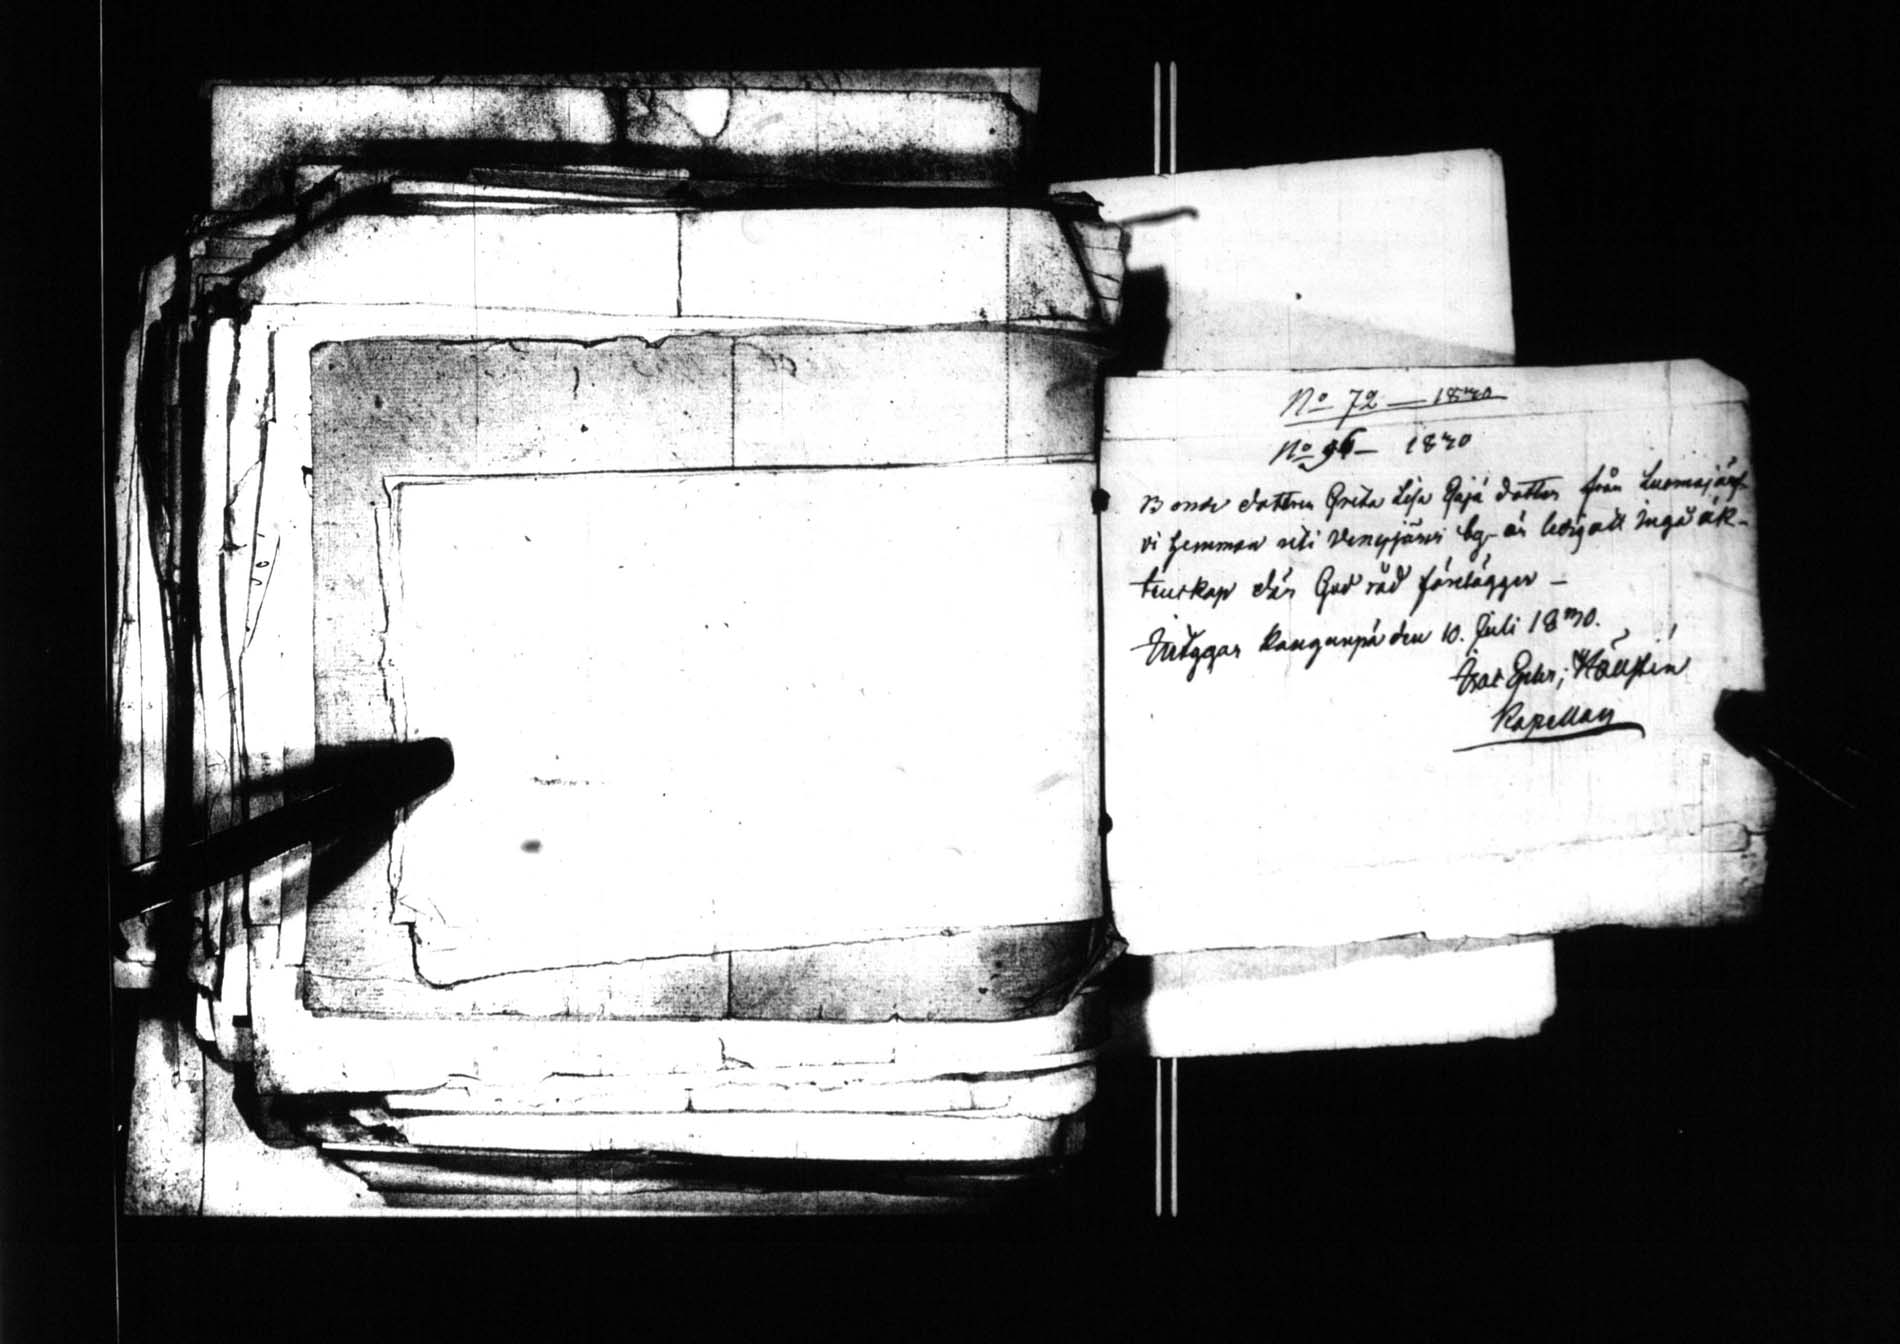 No 72 — 1870
No 96 — 1870
Bonde dottren Greta Lisa dotter från Luomajärf-
vi hemman uti Venesjärvi by är ledig att ingå äk-
tenskap där Gud råd förelägger —
Intygar Kanganpä den 10. Juli 1870.
Kapellan